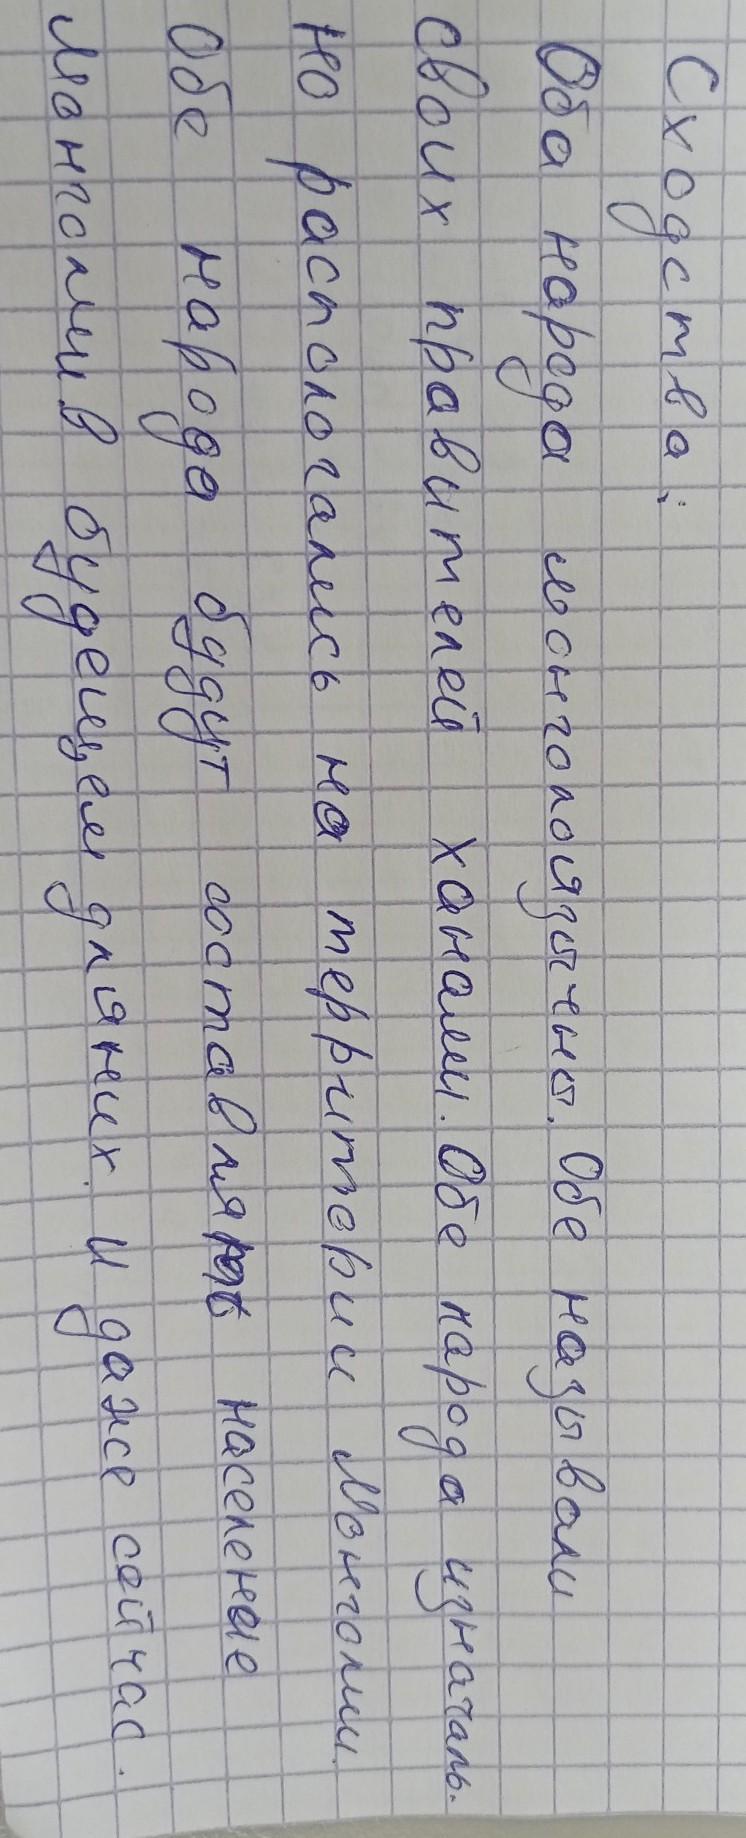 Сходства:
Оба народа монголоязычны. Обе называли
своих правителей ханами. Обе народа изначаль-
но распологались на территории Монголии.
Обе народа будут составлять население
Монголии в будещем для них. И даже сейчас.